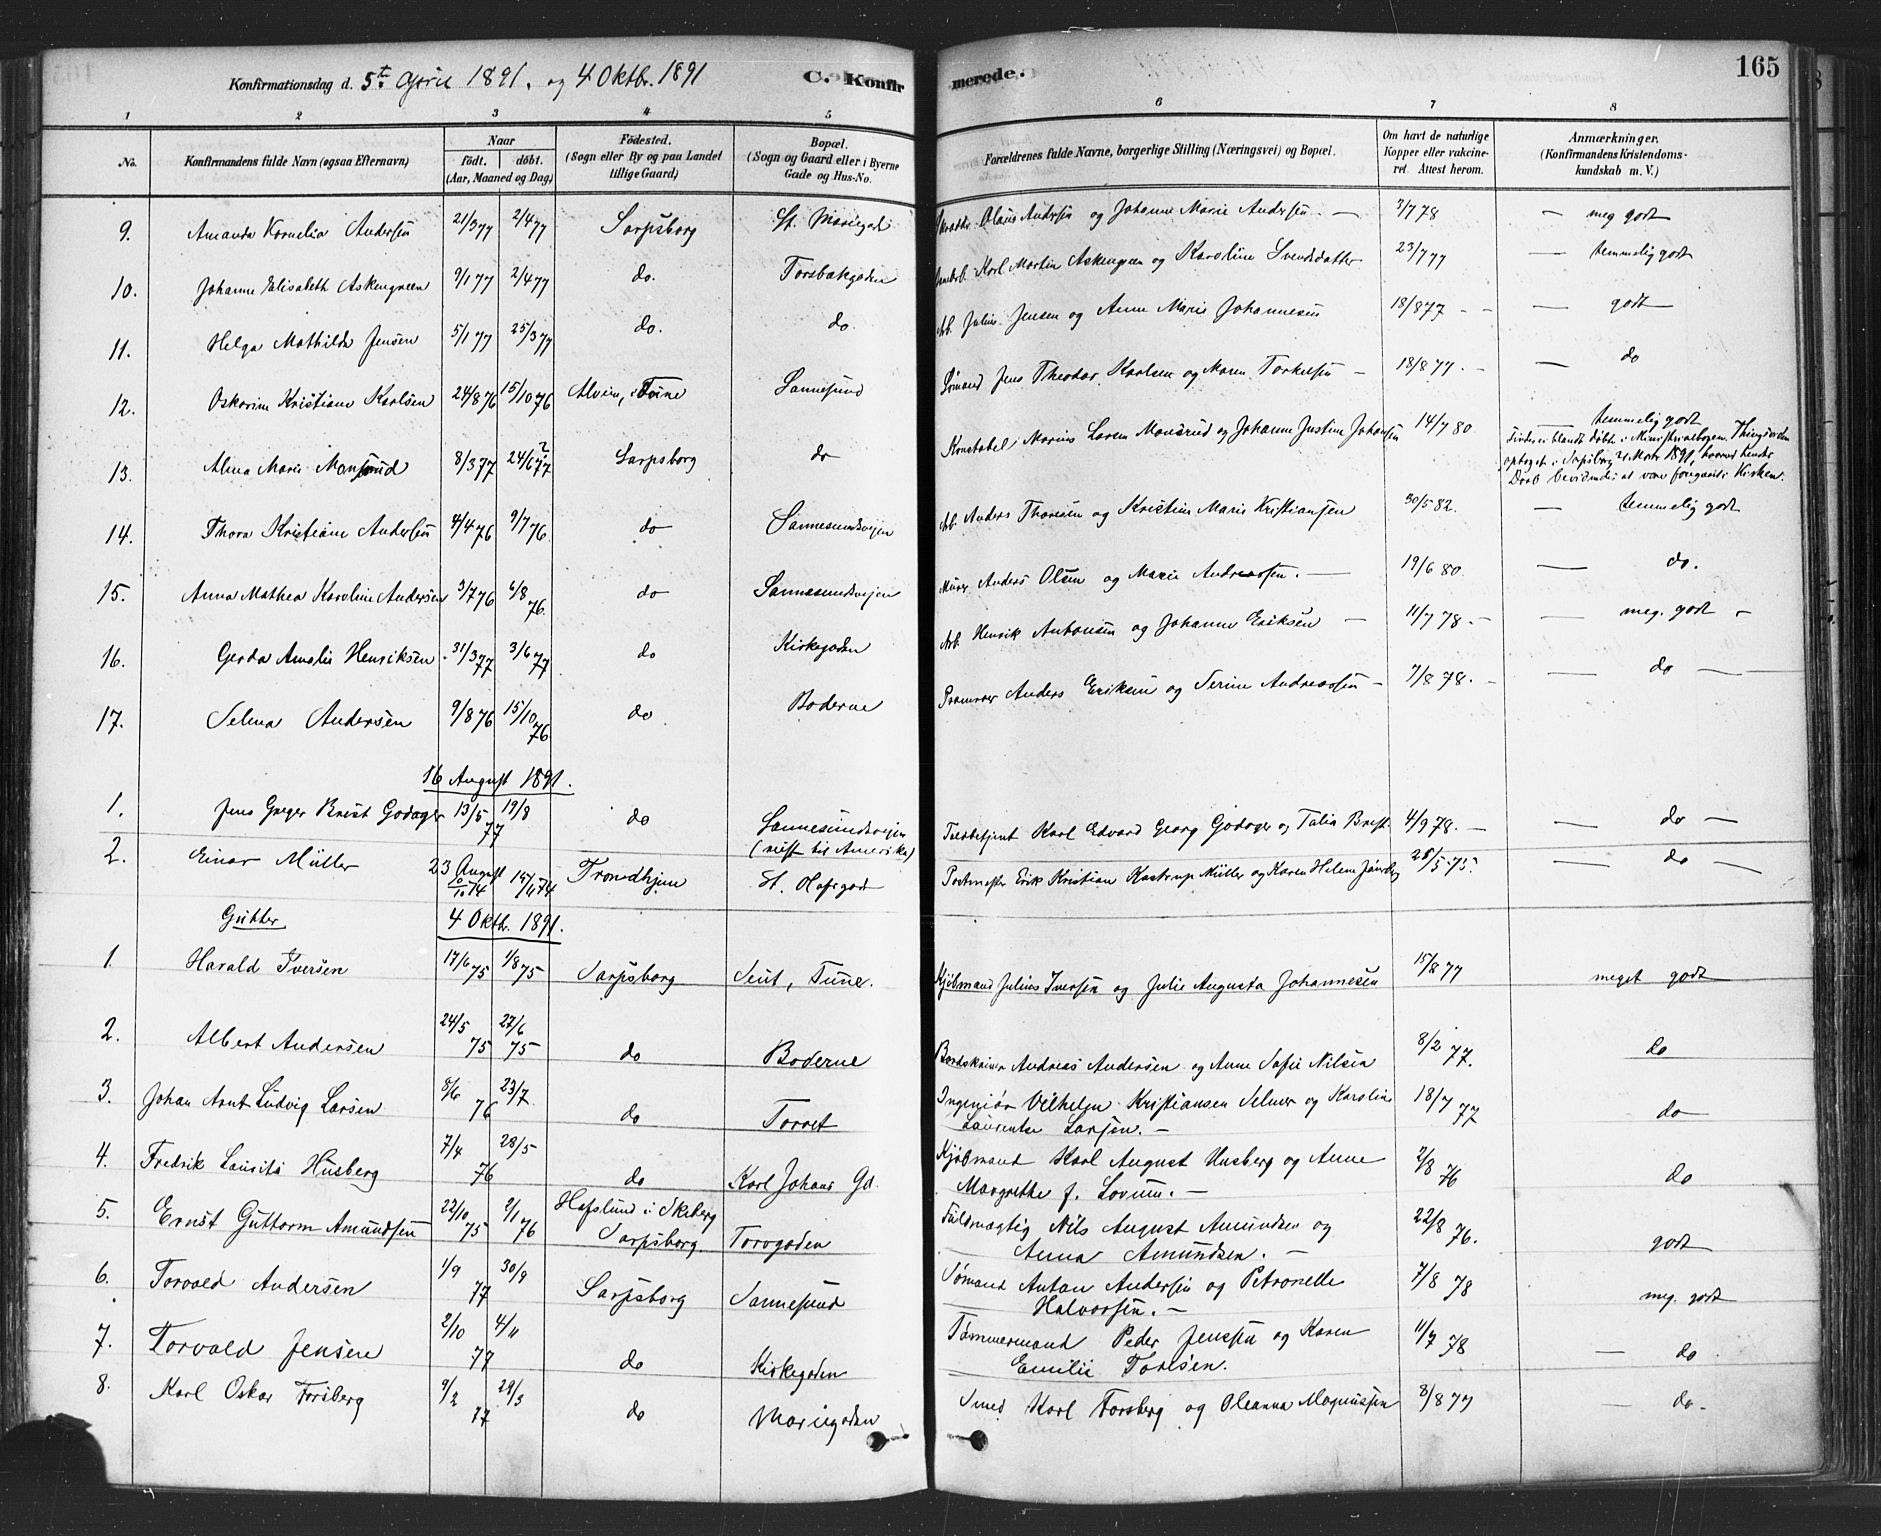 Konfirmationsdag d. 5te April 1891. og 4 Oktbr. 1891 C. Konfirmerede. 165
1 2 3 4 5 6 7 8
No. Konfirmandens fulde Navn (ogsaa Efternavn) Naar født. døbt. (Aar, Maaned og Dag) Fødested. (Sogn eller By og paa Landet tillige Gaard) Bopæl. (Sogn og Gaard eller i Byerne Gade og Hus-No. Forældrenes fulde Navne, borgerlige Stilling (Næringsvei) og Bopæl. Om havt de naturlige Kopper eller vakcineret. Attest herom. Anmærkninger. (Konfirmandens Kristendomskundskab m. V.)
9. Amanda Kornelia Andersen 21/3 77 2/4 77 Sarpsborg St. Mariegad Olaus Andersen og Johanne Marie Andersen — 3/7 78 — meg godt
10. Johanne Elisabeth Askengreen 9/1 77 2/4 77 do. Torsbækgaden Karl Martin Askengreen og Karoline Svendsdatter 23/7 77 — temmelig godt
11. Helga Mathilde Jensen 5/1 77 25/3 77 do. do Arb. Julius Jensen og Anne Marie Johannesen 18/8 77 - - — godt
12. Oskarine Kristiane Karlsen 24/8 76 15/10 76 Alvim, i Tune Sannesund Sømand Jens Theodor Karlsen og Maren Torkelsen — 18/8 77. - — do
13. Alma Marie Monsrud 8/3 77 24/6 77 ? Sarpsborg do Konstabel Marius Laren Monsrud og Johanne Justine Johansen 14/7 80 temmelig godt
Findes ei blandt døbte i Ministerialbogen. Thingsvidne optaget i Sarpsborg Marts 1891, hvorved hendes Daab bevidnedes at være foregaaet i Kirken.
14. Thora Kristiane Andersen 4/4 76 9/7 76 do Sannesundsveien Arb. Anders Thoresen og Kristine Marie Kristiansen 30/5 82. — temmelig godt
15. Anna Mathea Karoline Andersen 3/7 76 6/8 76. do Sannesundsveien Murer Anders Olsen og Marie Andreassen. — 19/6 80. — do.
16. Gerda Amalie Henriksen 31/3 77 3/6 77 do Kirkegaden Arb. Henrik Antonsen og Johanne Eriksen — 11/7 78. - — meg. godt -
17. Selma Andersen 9/8 76 15/10 76. do Boderne Prammer Anders Eriksen og Serine Andreassen — 7/8 78. - — do —
16 August 1891.
1. Jens Greger Brist Godager 13/5 77 19/8 do Sannesundsveien (reist til Amerika) Toldbetjent Karl Edvard Georg Godager og Talia Brist 4/9 78. - — do —
23 August
2. Einar Müller 10/10 74 14/11 74 Trondhjem St. Olafsgad Postmester Erik Kristian Kastrup Müller og Karen Helene 28/5 75. — do —
Gutter 4 Oktb. 1891.
1. Harald Iversen 17/6 75 1/8 75 Sarpsborg Seut, Tune. Kjøbmand Julius Iversen og Julie Augusta Johannesen 15/8 77 meget godt
2. Albert Andersen 24/5 75 27/6 75 do Boderne Bordskriver Andreas Andersen og Anne Sofie Nilsen 8/2 77. do
3. Johan Arnt Ludvig Larsen 8/6 76 23/7 do Torvet Ingeniør Vilhelm Kristiansen Selmer og Karoline Laurentse Larsen. - 18/7 77 do
4. Fredrik Laurits Husberg 7/4 76 28/5 do Karl Johans Gd. Kjøbmand Karl August Husberg og Anne Margrethe f. Lorum. - 2/8 76 do
5. Ernst Guttorm Amundsen 22/10 75 2/1 76 Hafslund i Skeberg Sarpsborg Torvgaden Fuldmægtig Nils August Amundsen og Anna Amundsen. - 22/8 76. godt
6. Torvald Andersen 1/9 77 30/9 Sarpsborg Sannesund Sømand Anton Andersen og Petronelle Halvorsen. - 7/8 78 meg. godt
7. Torvald Jensen 2/10 77 4/11 do Kirkegaden Tømmermand Peder Jensen og Karen Emilie Toresen. 11/7 78 — do
8. Karl Oskar Forsberg 9/2 77 29/3 do Mariegaden Smed Karl Forsberg og Oleanna Magnussen 8/8 77 — do.